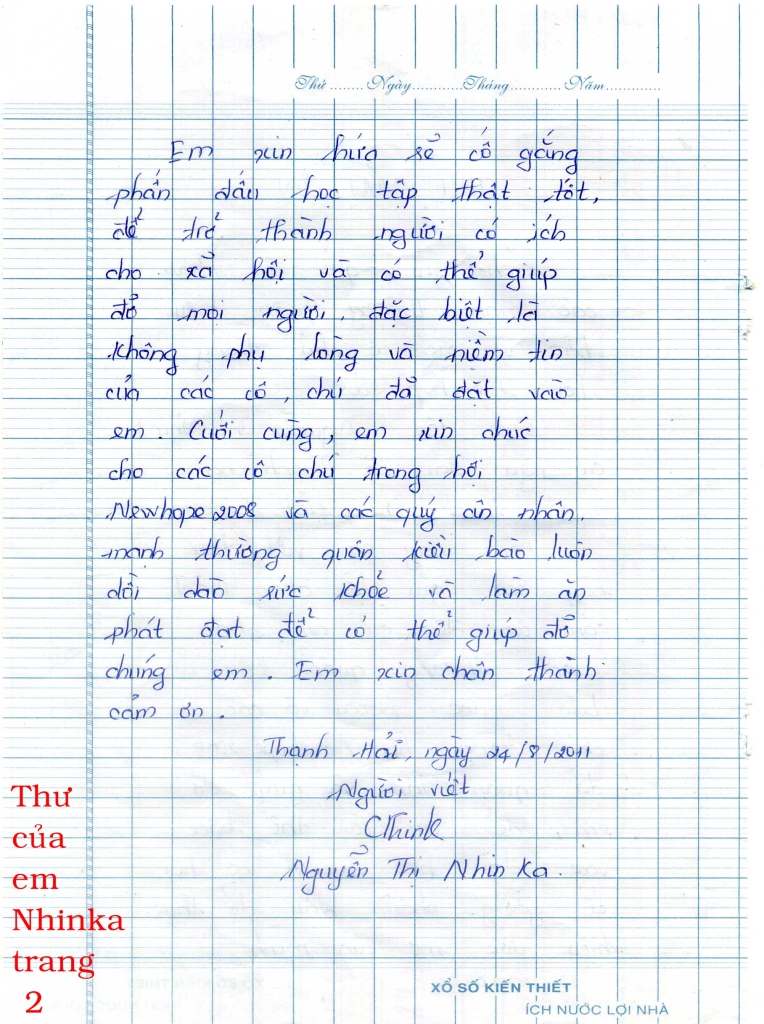 Thứ ........ Ngày ............ Tháng ............ Năm .............
Em xin hứa sẽ cố gắng
phấn đấu học tập thật tốt,
để trở thành người có ích
cho xã hội và có thể giúp
đỡ mọi người. đặc biệt là
không phụ lòng và niềm tin
của các cô, chú đã đặt vào
em. Cuối cùng, em xin chúc
cho các cô chú trong hội
Newhope 2008 và các quý ân nhân,
mạnh thường, quân kiều bào luôn
dồi dào sức khỏe và làm ăn
phát đạt để có thể giúp đỡ
chúng em. Em xin chân thành
cảm ơn.
Thạnh Hải, ngày 24/8/2011
Người viết
CThink
Nguyễn Thị Nhin Ka.
Thư
của
em
Nhinka
trang
2
XỔ SỐ KIẾN THIẾT
ÍCH NƯỚC LỢI NHÀ